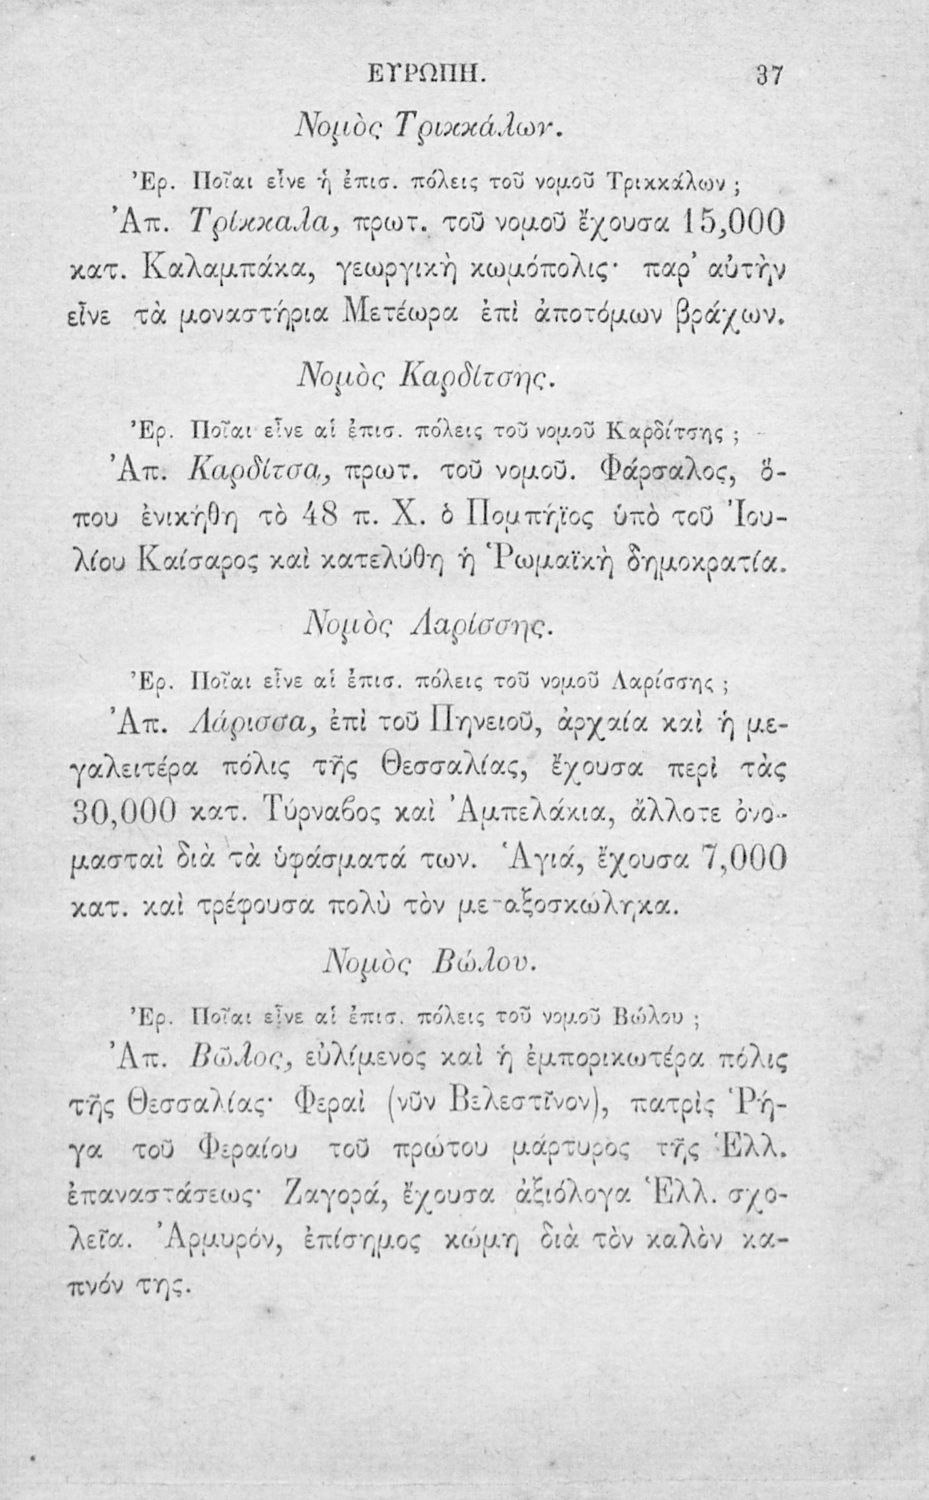 ΕΥΡΩΠΗ. 37
Νομὸς Τρικκάλων.
Ἐρ. Ποῖαι εἶνε ἡ ἐπισ. πόλεις τοῦ νομοῦ Τρικκάλων ;
Ἀπ. Τρίκκαλα, πρωτ. τοῦ νομοῦ ἔχουσα 15,000
κατ. Καλαμπάκα, γεωργικὴ κωμόπολις· παρ’ αὐτὴν
εἶνε τὰ μοναστήρια Μετέωρα ἐπὶ ἀποτόμων βράχων.
Νομὸς Καρδίτσης.
Ἐρ. Ποῖαι εἶνε αἱ ἐπισ. πόλεις τοῦ νομοῦ Καρδίτσης ;
Ἀπ. Καρδίτσα, πρωτ. τοῦ νομοῦ. Φάρσαλος, ὅ-
που ἐνικήθη τὸ 48 π. Χ. ὁ Πομπήϊος ὑπὸ τοῦ Ἰου-
λίου Καίσαρος καὶ κατελύθη ἡ Ῥωμαϊκὴ δημοκρατία.
Νομὸς Λαρίσσης.
Ἐρ. Ποῖαι εἶνε αἱ ἐπισ. πόλεις τοῦ νομοῦ Λαρίσσης ;
Ἀπ. Λάρισσα, ἐπὶ τοῦ Πηνειοῦ, ἀρχαία καὶ ἡ με-
γαλειτέρα πόλις τῆς Θεσσαλίας, ἔχουσα περὶ τὰς
30,000 κατ. Τύρναβος καὶ Ἀμπελάκια, ἄλλοτε ὀνο-
μασταὶ διὰ τὰ ὑφάσματά των. Ἁγιά, ἔχουσα 7,000
κατ. καὶ τρέφουσα πολὺ τὸν μεταξοσκώληκα.
Νομὸς Βώλου.
Ἐρ. Ποῖαι εἶνε αἱ ἐπισ. πόλεις τοῦ νομοῦ Βώλου ;
Ἀπ. Βῶλος, εὐλίμενος καὶ ἡ ἐμπορικωτέρα πόλις
τῆς Θεσσαλίας· Φεραὶ (νῦν Βελεστῖνον), πατρὶς Ῥή-
γα τοῦ Φεραίου τοῦ πρώτου μάρτυρος τῆς Ἑλλ.
ἐπαναστάσεως· Ζαγορά, ἔχουσα ἀξιόλογα Ἑλλ. σχο-
λεῖα. Ἁρμυρόν, ἐπίσημος κώμη διὰ τὸν καλὸν κα-
πνόν της.